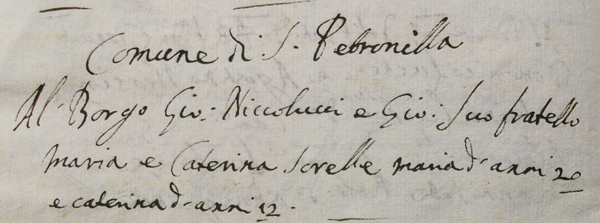 Comune di S. Petronilla
Al Borgo Gio: Niccolucci e Gio: suo fratello
maria e Caterina sorelle maria d'anni 20
e caterina d'anni 12.